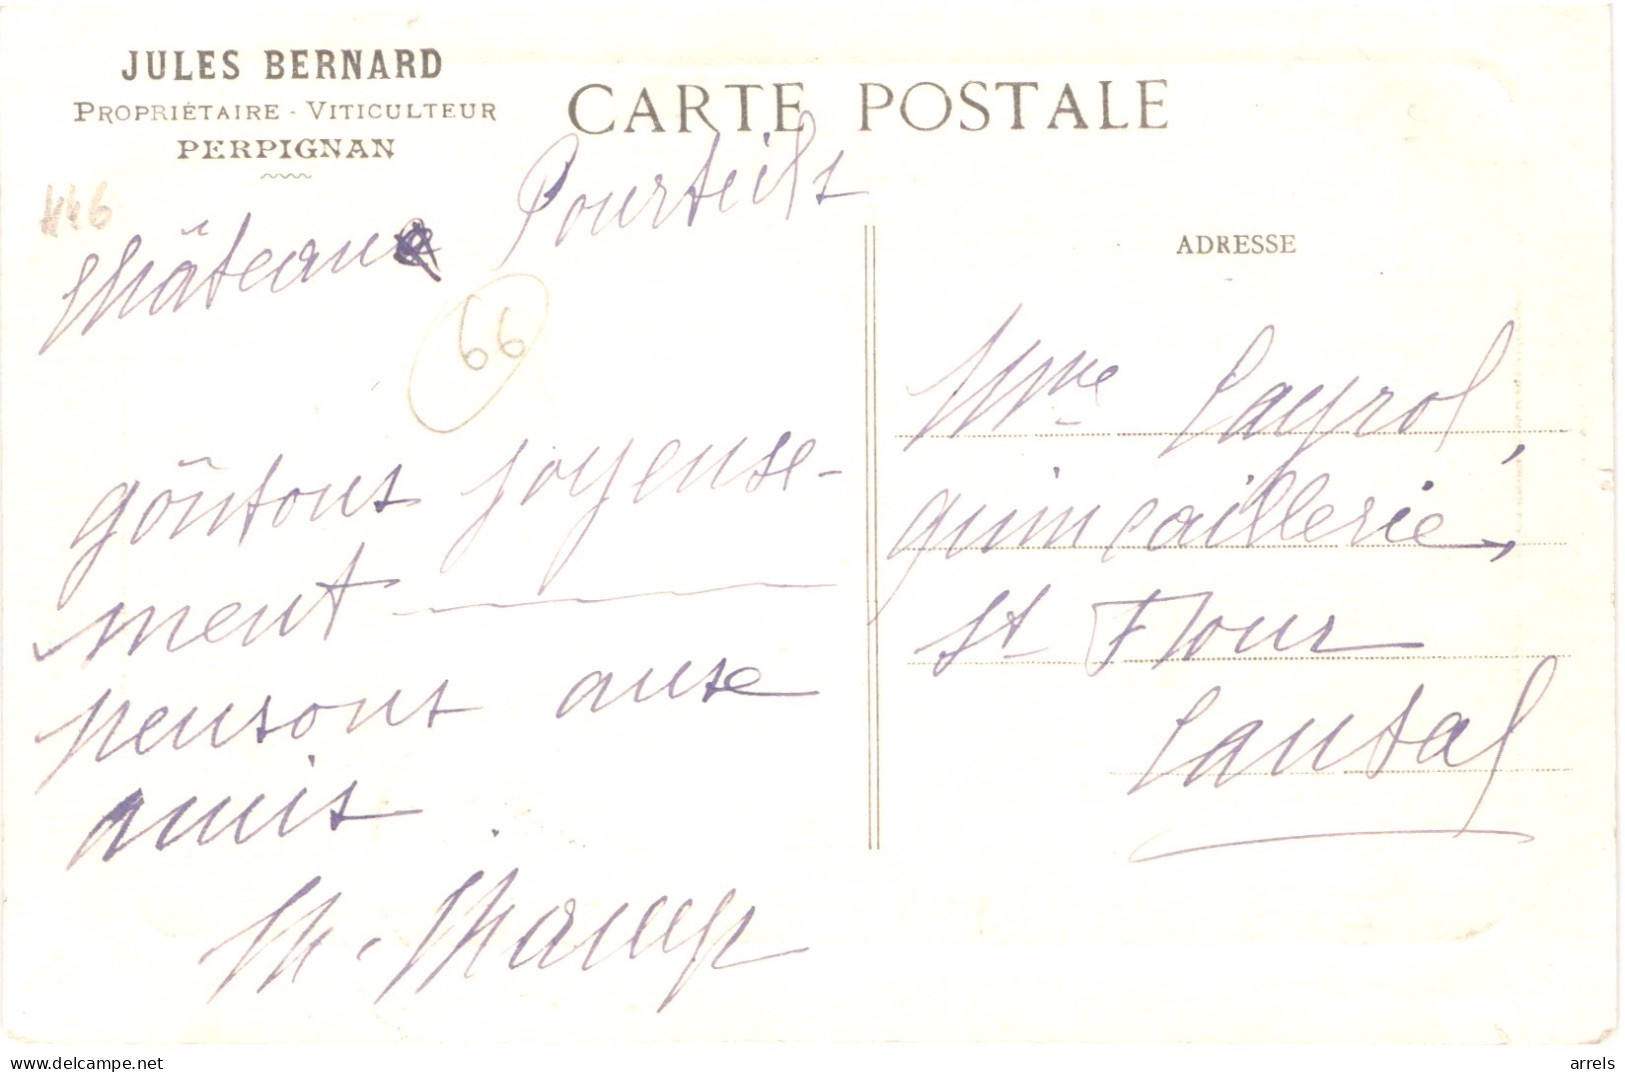 JULES BERNARD
PROPRIÉTAIRE - VITICULTEUR
PERPIGNAN
CARTE POSTALE
446
Château Pourteils
66
goûtons joyeuse-
ment
pensons aux
amis.
M.
ADRESSE
Mme Cayrol,
quincaillerie,
St Flour
Cantal
www.delcampe.net
arrels